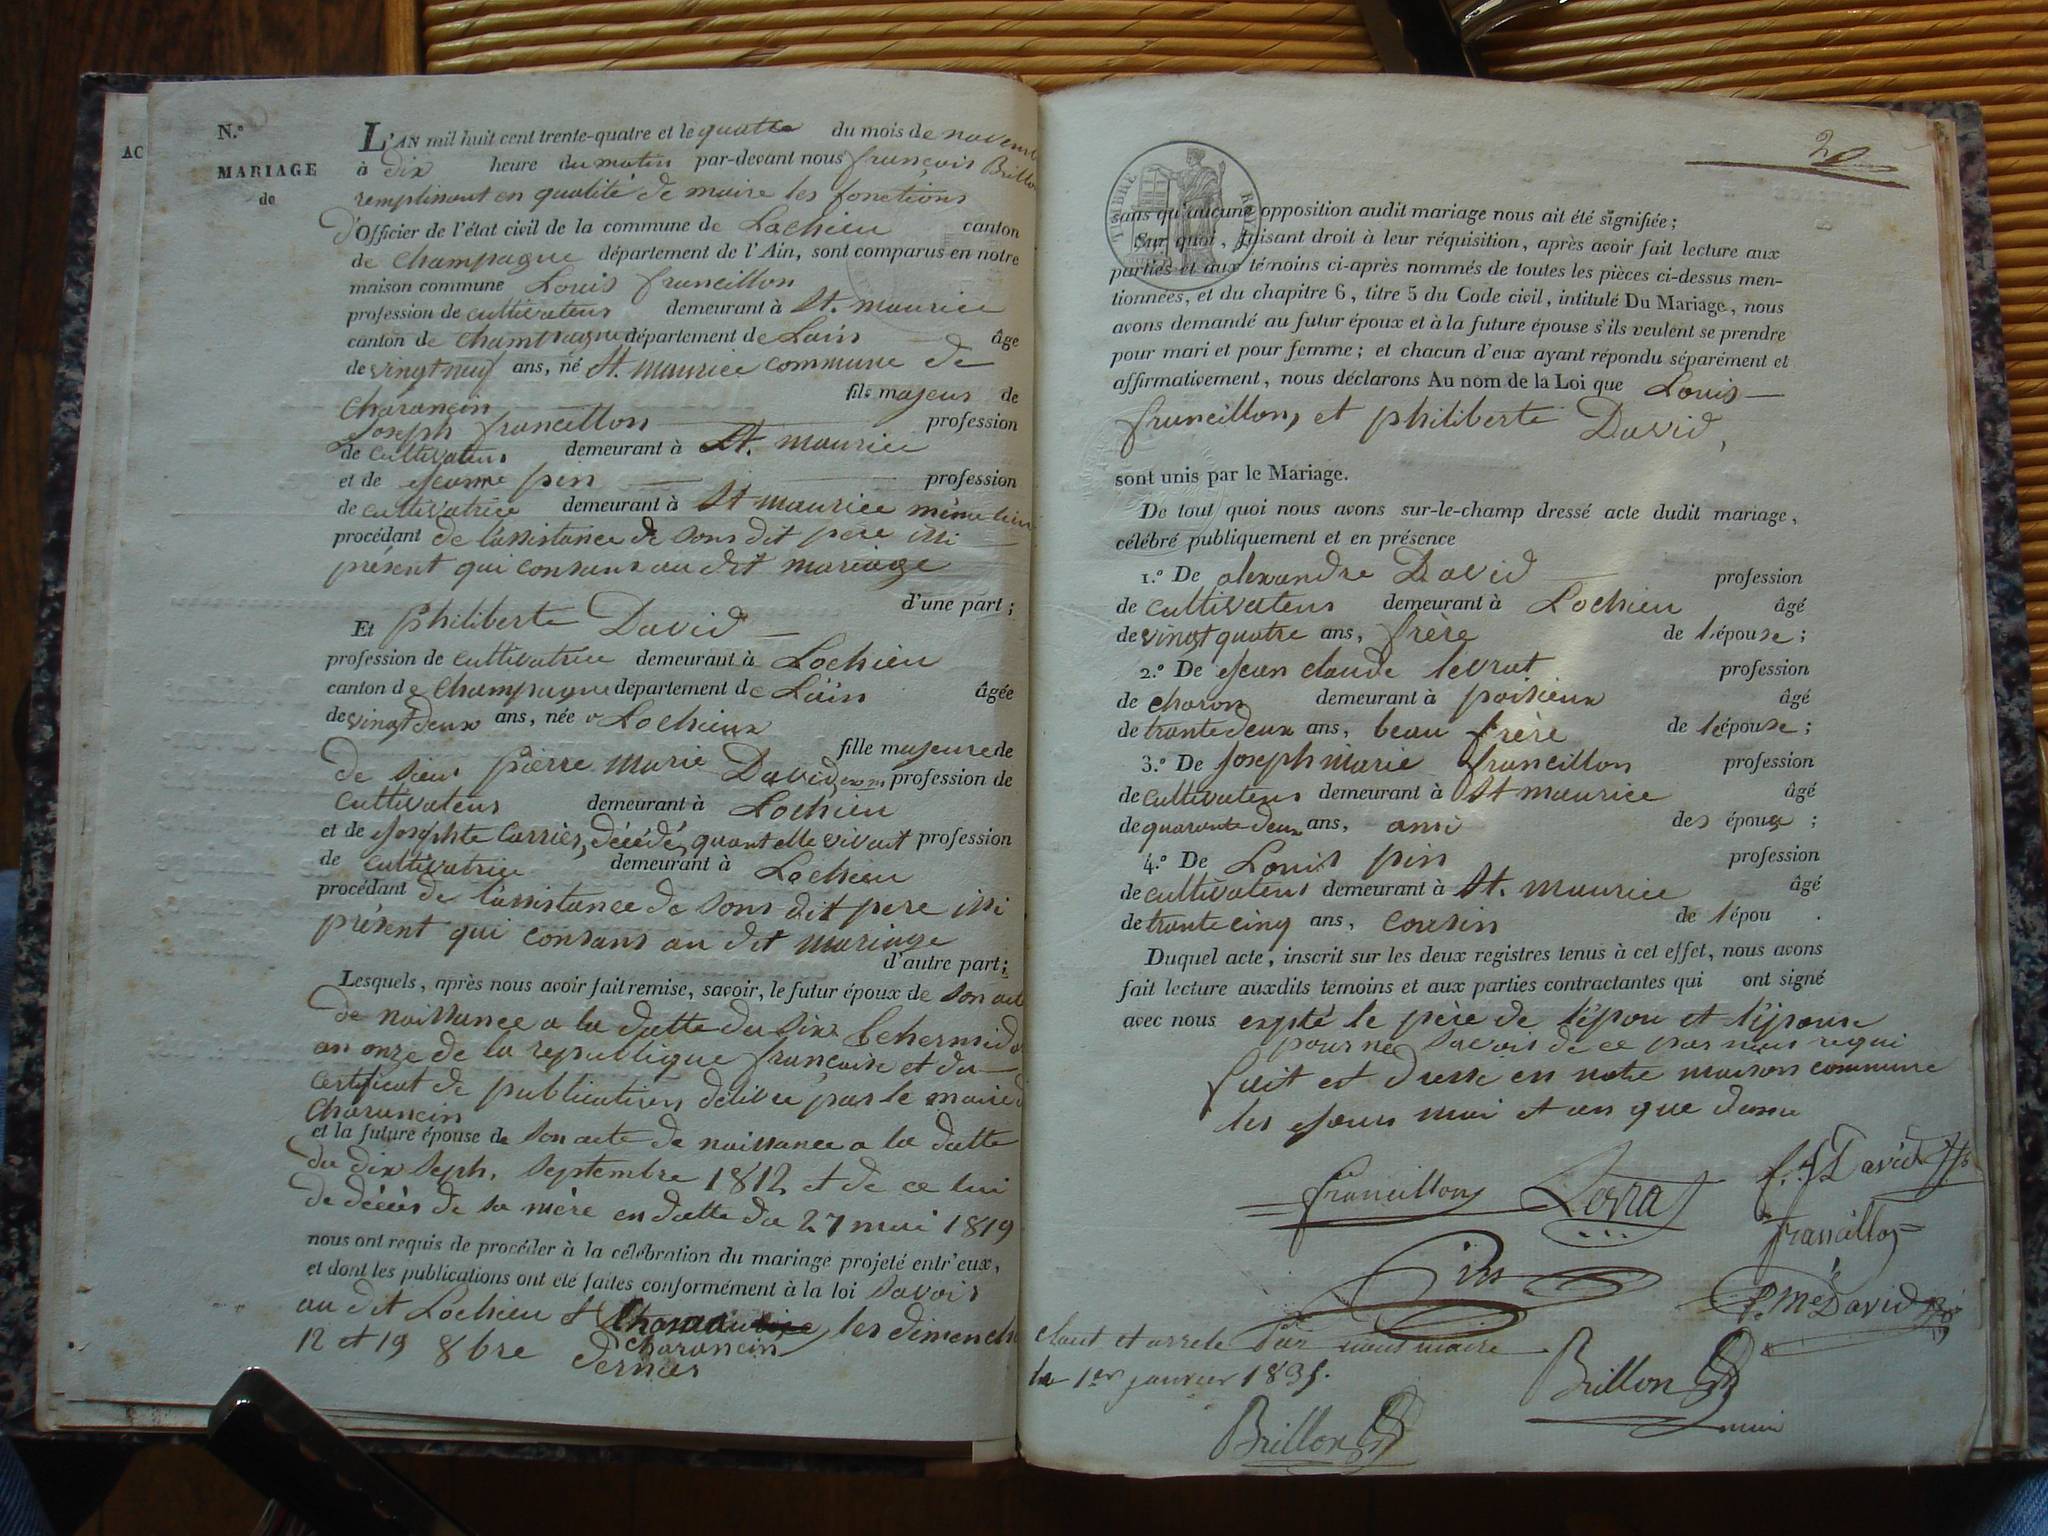 N.º
MARIAGE
de
AC
L'AN mil huit cent trente-quatre et le quatre du mois de novem
à dix heure du matin par-devant nous françois Brillon
remplissant en qualité de maire les fonctions
d'Officier de l'état civil de la commune de Lochieu canton
de Champagne département de l'Ain, sont comparus en notre
maison commune Louis francillon
profession de cultivateur demeurant à St. maurice
canton de Champagne département de Lain âgé
de vingt neuf ans, né St. maurice commune de
Charancin fils majeur de
Joseph francillon profession
de cultivateur demeurant à St. maurice
et de jeanne pin profession
de cultivatrice demeurant à St maurice même lieu
procédant de lassistance de sons dit pere issi
présent qui consans au dit mariage
d'une part;
Et philiberte David
profession de cultivatrice demeurant à Lochieu
canton de Champagne département de Lain âgée
de vingt deux ans, née a Lochieux
fille majeure de
de sieur pierre marie David profession de
cultivateur demeurant à Lochieu
et de josephte Carrier, décédé, quant elle vivait profession
de cultivatrice demeurant à Lochieu
procédant de l'assistance de sons dit pere issi
présent qui consans au dit mariage
d'autre part;
Lesquels, après nous avoir fait remise, savoir, le futur époux de son act
de naissance a la datte du six thermido
an onze de la republique françaisse et du
certificat de publication délivré par le maire d
Charancin
et la future épouse de son acte de naissance a la datte
du dix seph, septembre 1812 et de ce lui
de décès de sa mère en datte du 27 mai 1819
nous ont requis de procéder à la célébration du mariage projeté entr'eux,
et dont les publications ont été faites conformément à la loi savoir
au dit Lochieu et les dimench
charancin
12 et 19 8bre dernier
20
TIMBRE ROYAL
sans qu'aucune opposition audit mariage nous ait été signifiée;
Sur quoi, faisant droit à leur réquisition, après avoir fait lecture aux
parties et aux témoins ci-après nommés de toutes les pièces ci-dessus men-
tionnées, et du chapitre 6, titre 5 du Code civil, intitulé Du Mariage, nous
avons demandé au futur époux et à la future épouse s'ils veulent se prendre
pour mari et pour femme; et chacun d'eux ayant répondu séparément et
affirmativement, nous déclarons Au nom de la Loi que Louis
francillon, et philiberte David,
sont unis par le Mariage.
De tout quoi nous avons sur-le-champ dressé acte dudit mariage,
célébré publiquement et en présence
1.º De alexandre David profession
de cultivateur demeurant à Lochieu âgé
de vingt quatre ans, frère de l'épouse;
2.º De jean claude levrat profession
de charon demeurant à poisieux âgé
de trante deux ans, beau frère de l'épouse;
3.º De Joseph marie francillon profession
de cultivateur demeurant à St maurice âgé
de quarante deux ans, ami des époux;
4.º De Louis pin profession
de cultivateur demeurant à St. maurice âgé
de trante cinq ans, cousin de l'épou.
Duquel acte, inscrit sur les deux registres tenus à cet effet, nous avons
fait lecture auxdits témoins et aux parties contractantes qui ont signé
avec nous expté le père de l'épou et l'épouse
pour ne savoir de ce par nous requi
fait et dressé en notre maison commune
les jours moi et an que dessu
francillon Levrat f. A David fils
francillon
Pin
P. Mie David
Brillon
maire
claut et arrete Par nous maire
le 1er janvier 1835.
Brillon